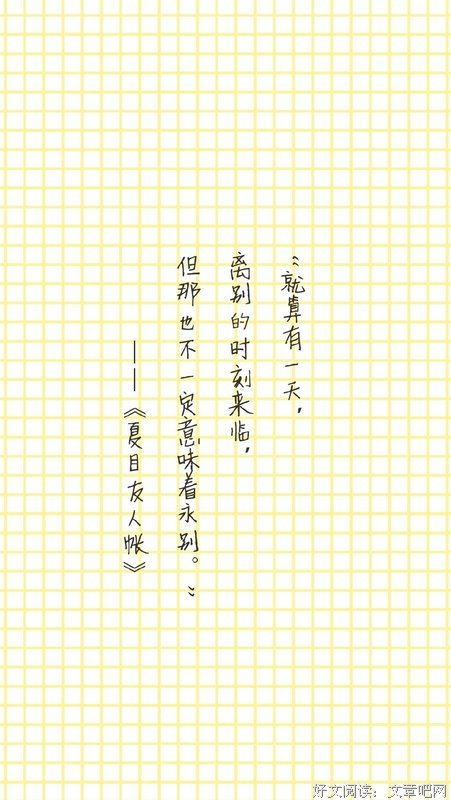 “就算有一天，
离别的时刻来临，
但那也不一定意味着永别。”
——《夏目友人帐》
好文阅读：文章吧网